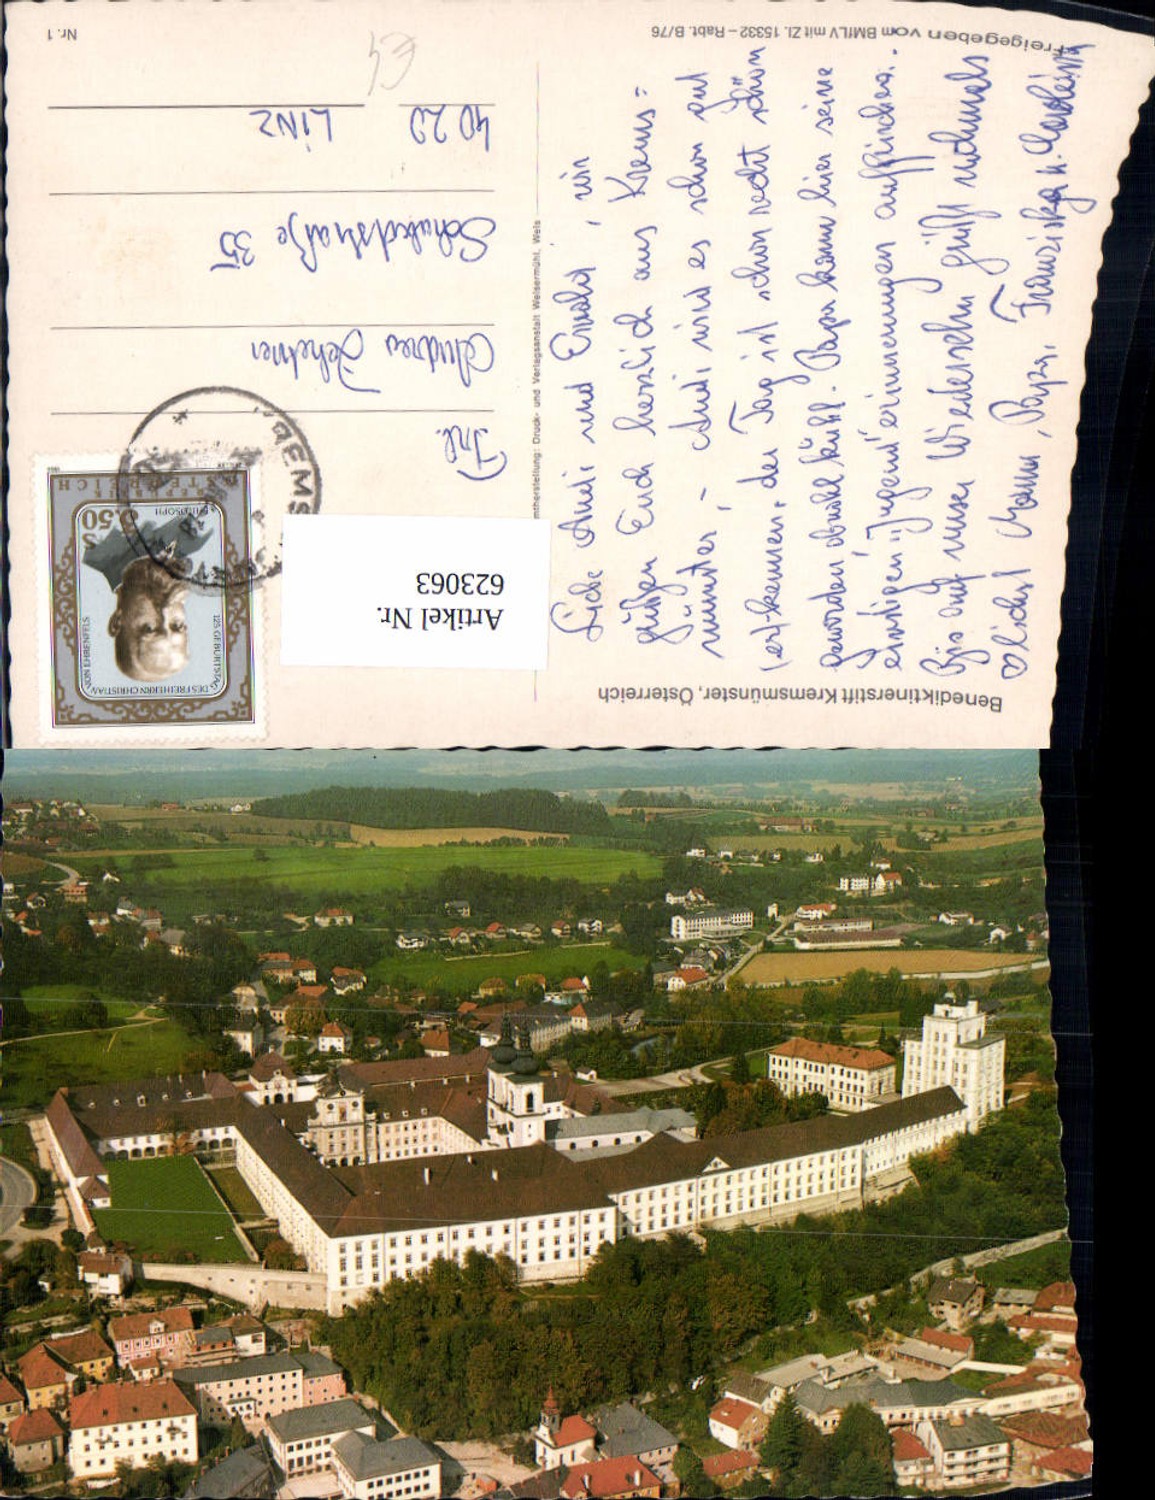 Benediktinerstift Kremsmünster, Österreich
Liebe Andi und Ewald, wir
grüßen Euch herzlich aus Krems=
münster, - Andi wird es schon gut
(er)kennen, der Tag ist schon recht schön
geworden obwohl kühl. Papa kann hier seine
"Jugend"erinnerungen auffrischen.
Bis auf unser Wiedersehn grüßt nochmals
Mama, Papa, Franziska u.
Freigegeben vom BMfLV mit Zl. 15332 – Rabt. B/76
Druck- und Verlagsanstalt Welsermühl, Wels
Artikel Nr.
623063
DES FREIHERRN CHRISTIAN
VON EHRENFELS
125. GEBURTSTAG
PHILOSOPH
S 3.50
REPUBLIK
ÖSTERREICH
Andrea
Schubertstraße 35
4020 LINZ
Nr. 1